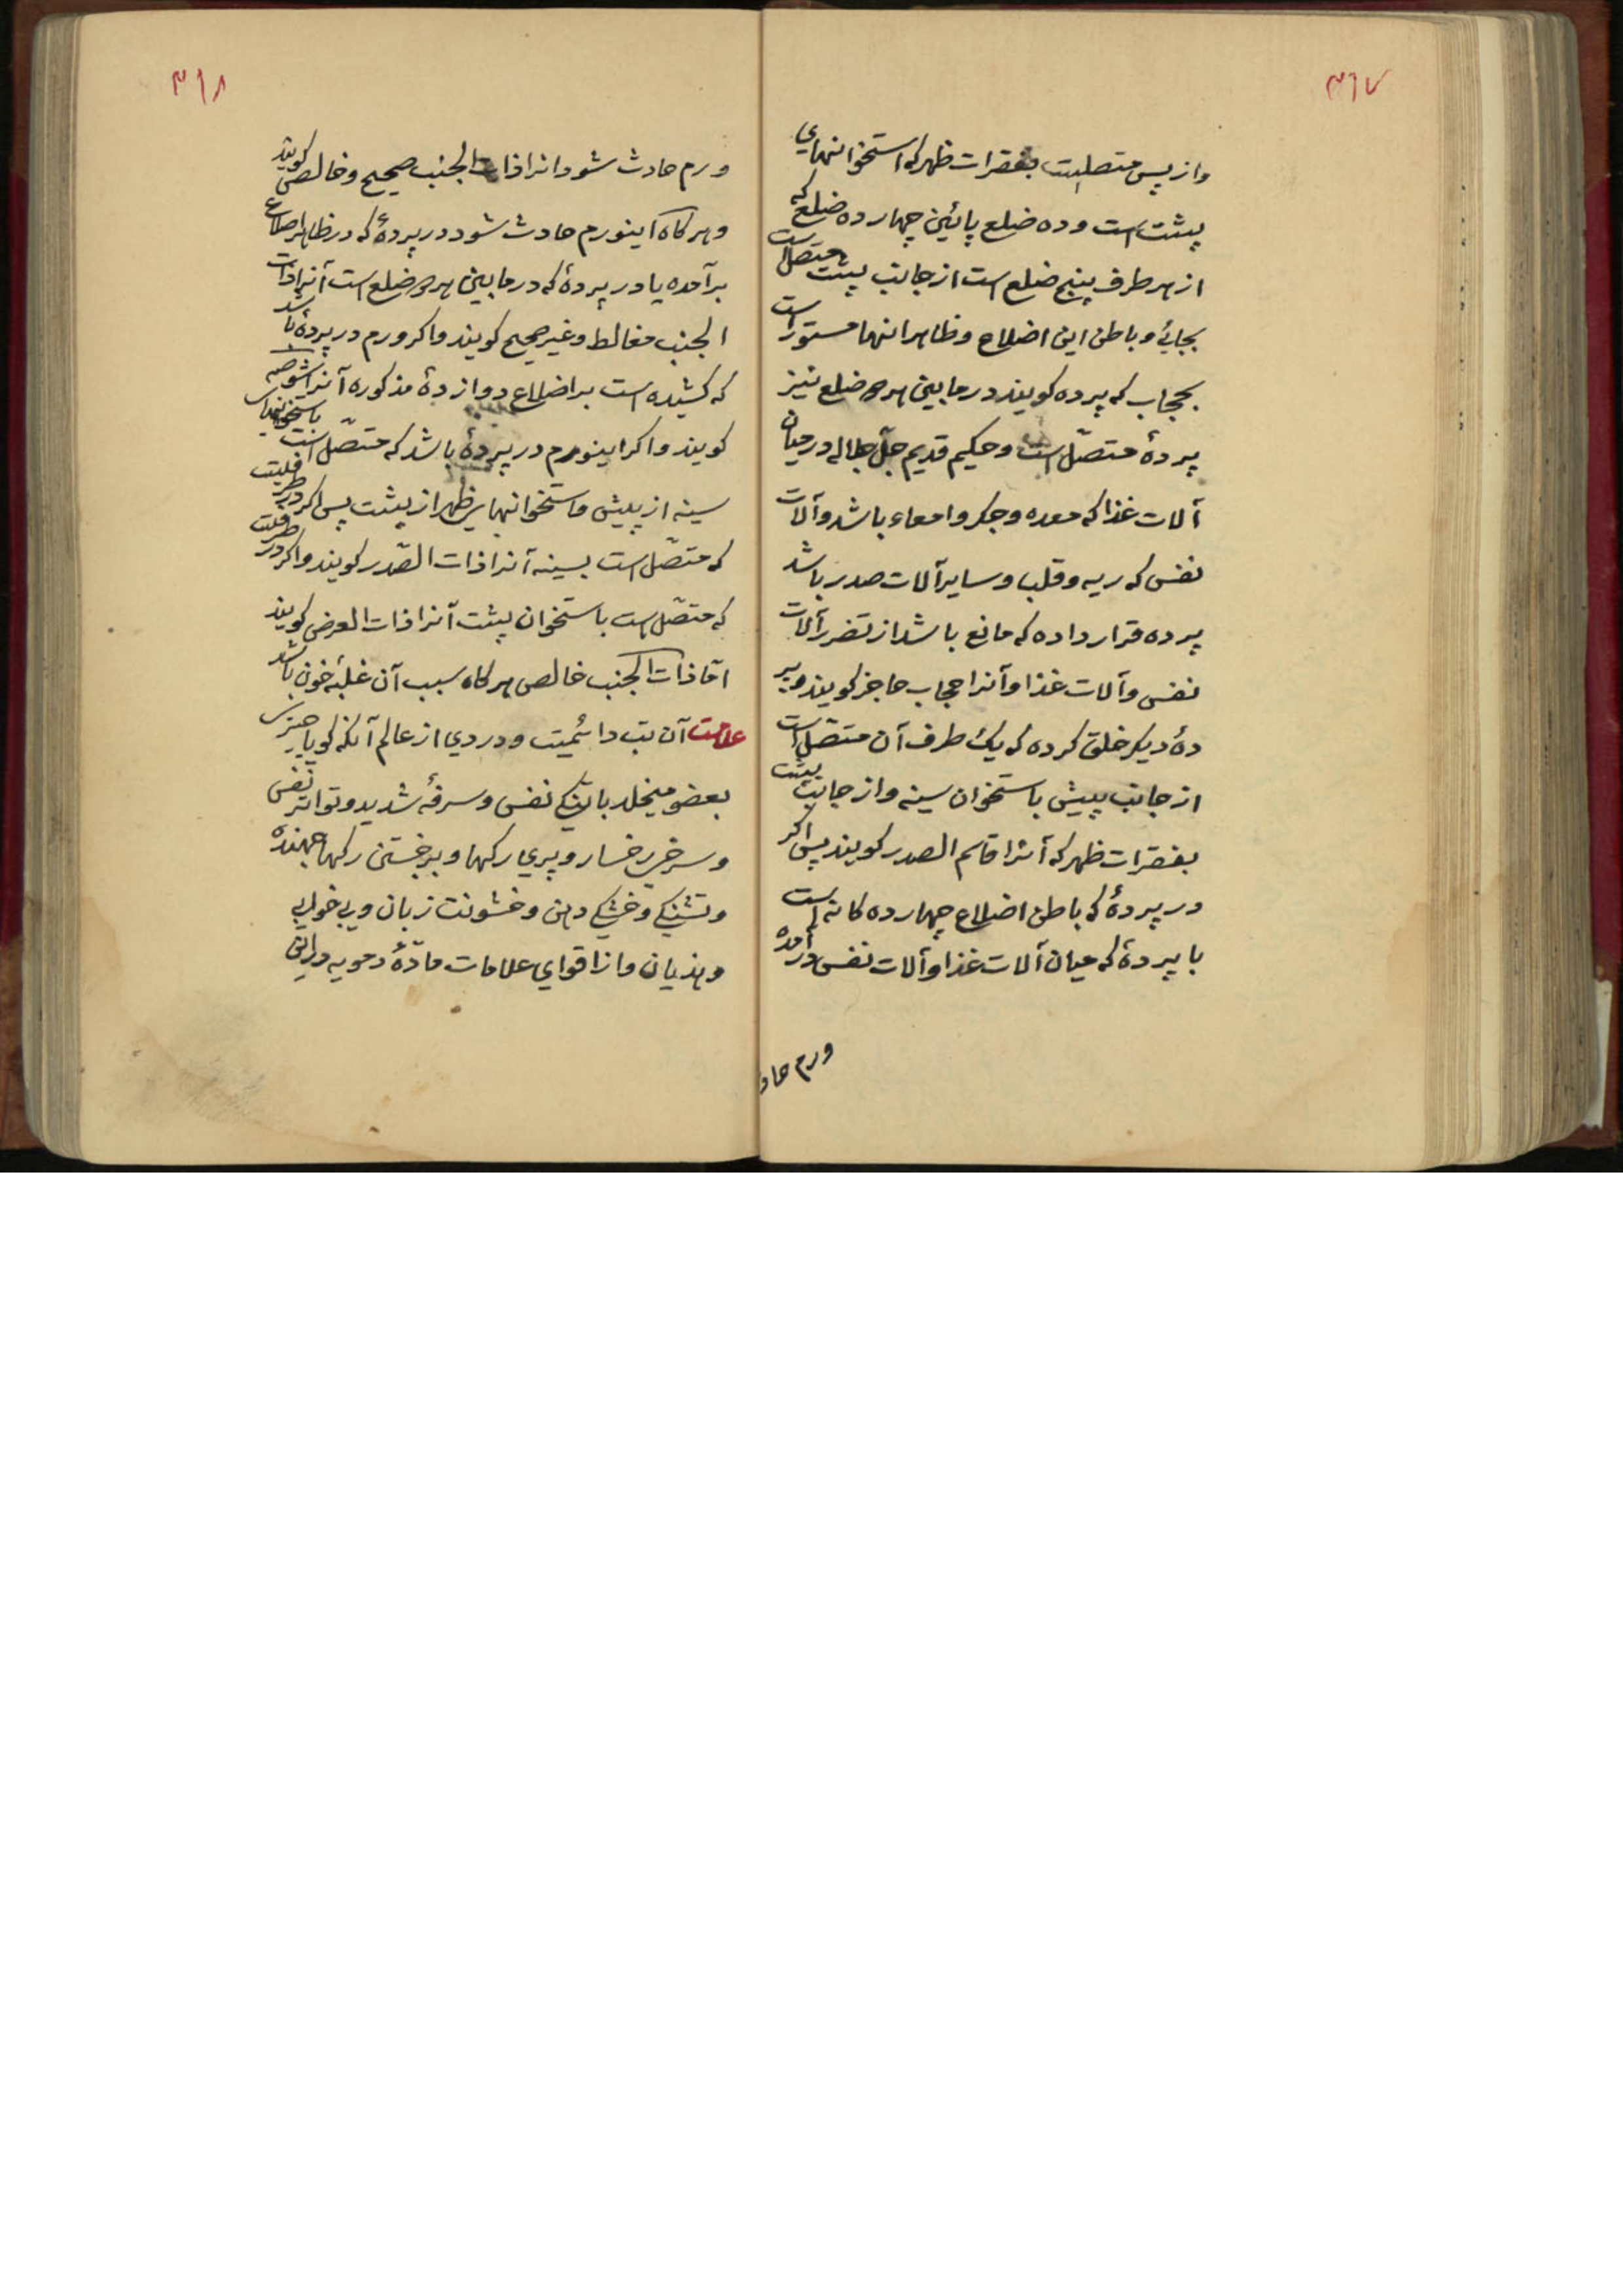 ۳۱۷
واز پس متصلیت بفقرات ظهر که استخوانهای
پشت است و ده ضلع پائین چهار ده ضلع که
از هر طرف پنج ضلع است از جانب پشت متصل است
بجائے و باطن این اضلاع و ظاهر انها مستور است
بحجاب که پرده کویند در مابین هر دو ضلع نیز
پردهٔ متصّل است و حکیم قدیم جلّ جلاله در میان
آلات غذا که معده و جکر و امعاء باشد و آلات
نفس که ریه و قلب و سایر آلات صدر باشد
پرده قرار داده که مانع باشد از تضرر آلات
نفس و آلات غذا و آنرا حجاب حاجز کویند و پر
دهٔ دیکر خلق کرده که یک طرف آن متصّل است
از جانب پیش باستخوان سینه و از جانب پشت
بفقرات ظهر که آنرا قاسم الصدر کویند پس اکر
در پردهٔ که باطن اضلاع چهار ده کانه است
یا پردهٔ که میان آلات غذا و آلات نفس در آمده
ورم حاد
۳۱۸
ورم حادث شود انرا ذات الجنب صحیح و خالص کویند
و هر کاه اینورم حادث شود در پردهٔ که در ظاهر اضلاع
برآمده یا در پردهٔ که در مابین هر دو ضلع است آنرا ذات
الجنب مغالط و غیر صحیح کویند و اکر ورم در پردهٔ باشد
که کشیده است بر اضلاع دوازدهٔ مذکوره آنرا شوصه
کویند و اکر اینورم در پردهٔ باشد که متصّل است باستخوانهای
سینه از پیش و استخوانهای ظهر از پشت پس اکر در طرفیت
که متصّل است بسینه آنرا ذات الصّدر کویند و اکر در طرفیت
که متصّل است باستخوان پشت آنرا ذات العرض کویند
امّا ذات الجنب خالص هر کاه سبب آن غلبهٔ خون باشد
علامت آن تب دائمیت و دردی از عالم آنکه کویا چیزی
بعضو میخلد با تنکی نفس و سرفهٔ شدید و تواتر نفس
و سرخی رخسار و پری رکها و برجستن رکها جهنده
و تشنکی و خشکی دهن و خشونت زبان و بی خوابی
و هذیان و از اقوای علامات مادّهٔ دمویه در این